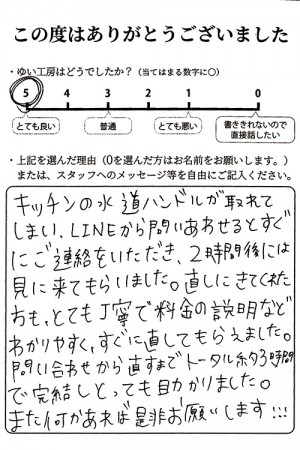 この度はありがとうございました
・ゆい工房はどうでしたか？（当てはまる数字に○）
5 4 3 2 1 0
とても良い 普通 とても悪い 書ききれないので直接話したい
・上記を選んだ理由（0を選んだ方はお名前をお願いします。）
または、スタッフへのメッセージ等を自由にご記入ください。
キッチンの水道ハンドルが取れて
しまい、LINEから問いあわせるとすぐ
にご連絡をいただき、2時間後には
見に来てもらいました。直しにきてくれた
方も、とても丁寧で料金の説明など
わかりやすく、すぐに直してもらえました。
問い合わせから直すまでトータル約3時間
で完結しとっても助かりました。
また何かあれば是非お願いします!!!